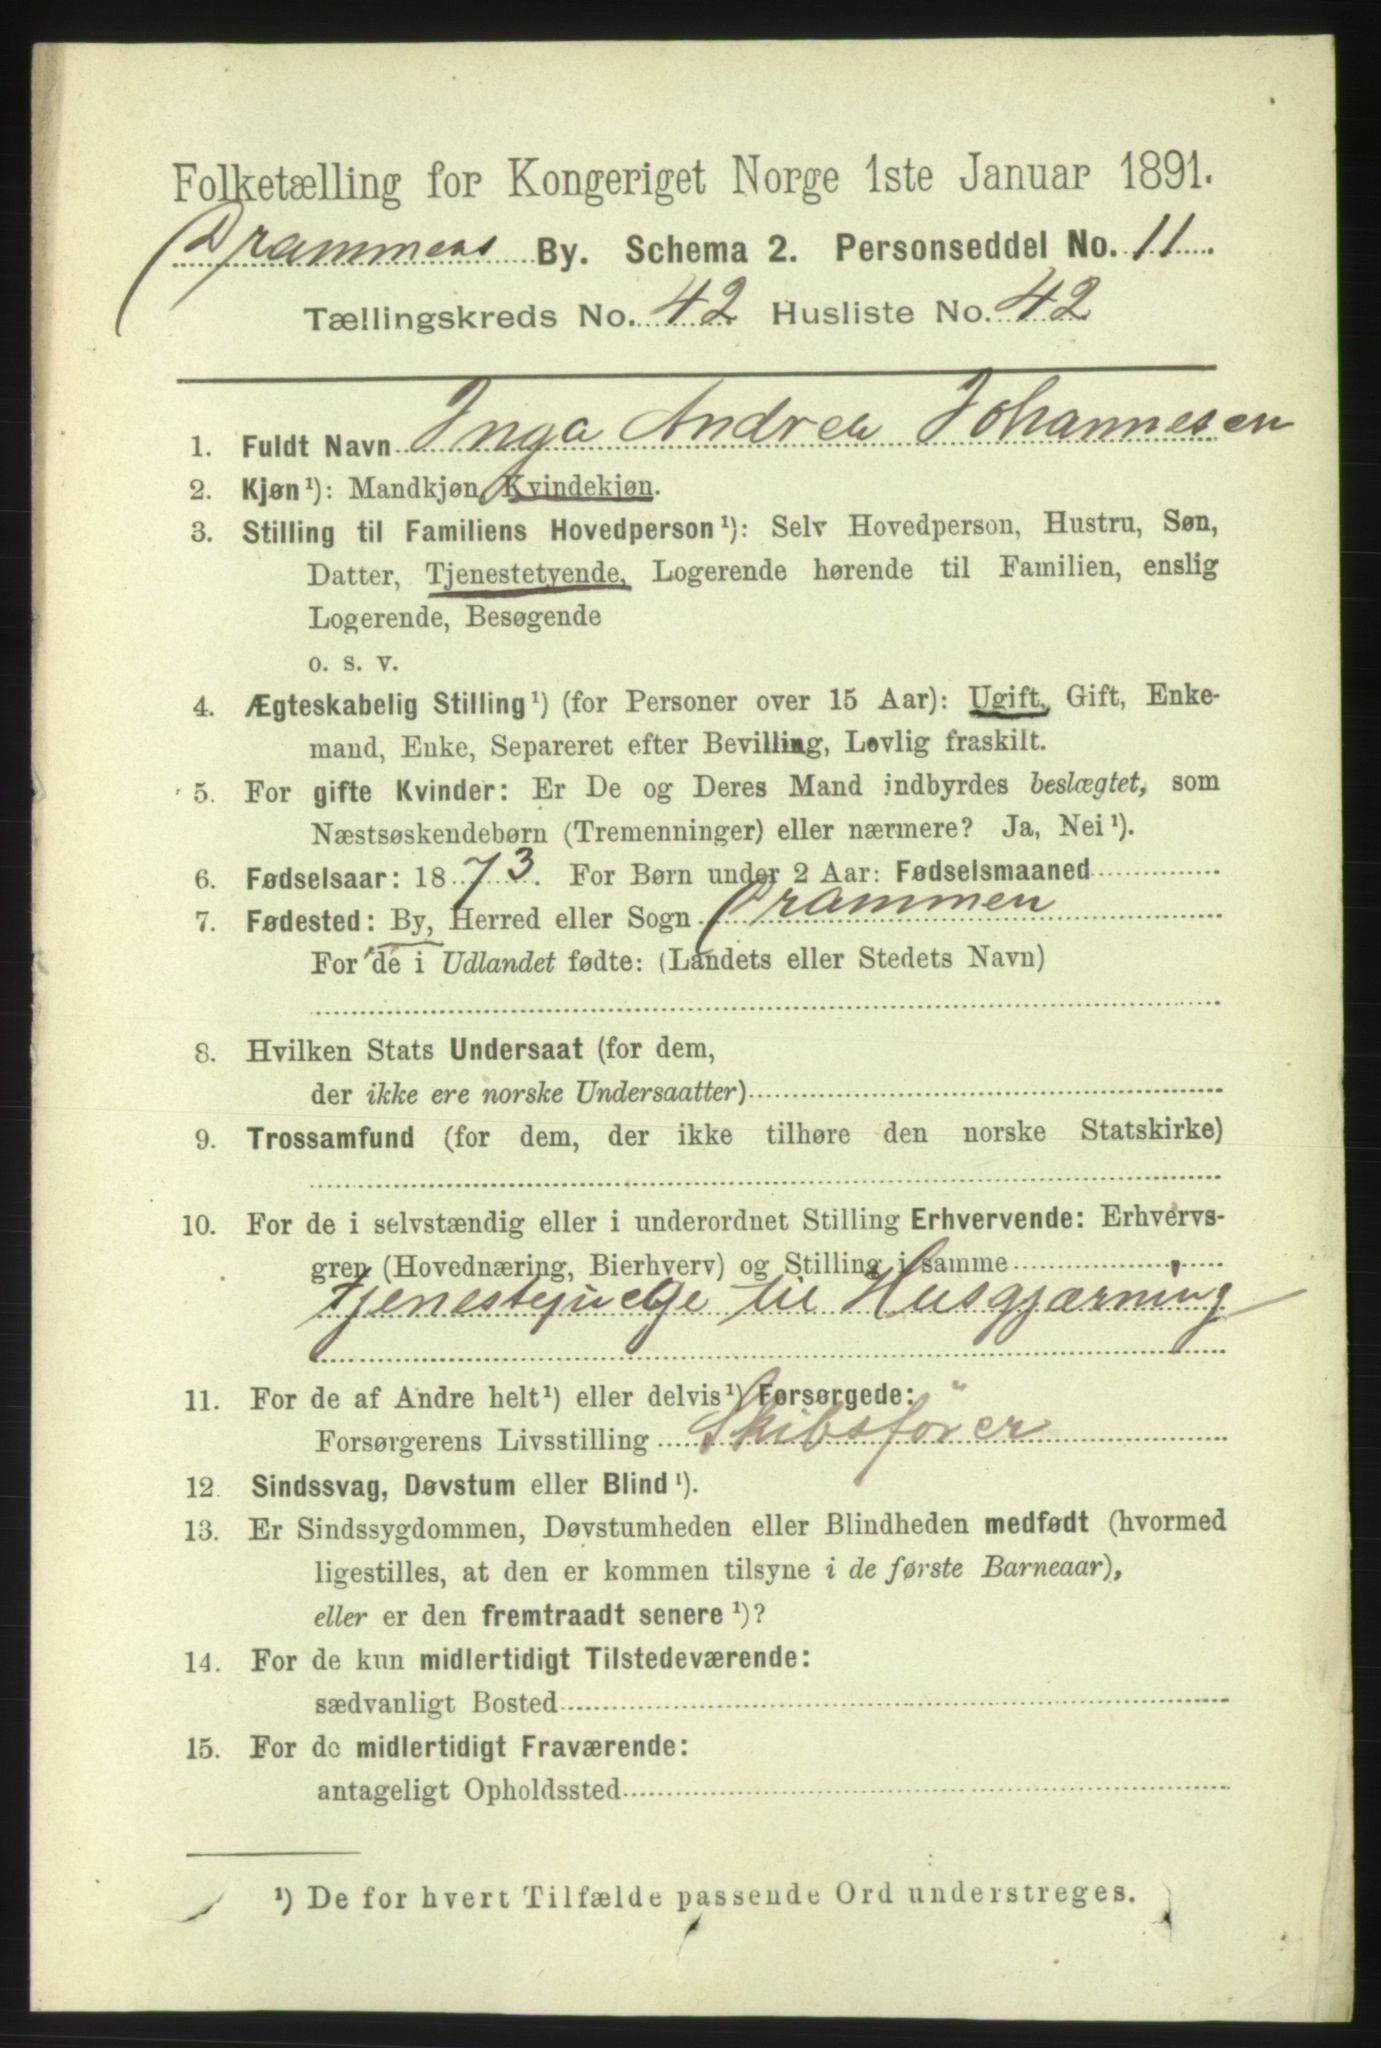 Folketælling for Kongeriget Norge 1ste Januar 1891.
Drammens By. Schema 2. Personseddel No. 11
Tællingskreds No. 42 Husliste No. 42
1. Fuldt Navn Inga Andrea Johannesen
2. Kjøn¹): Mandkjøn, Kvindekjøn.
3. Stilling til Familiens Hovedperson¹): Selv Hovedperson, Hustru, Søn,
Datter, Tjenestetyende, Logerende hørende til Familien, enslig
Logerende, Besøgende
o. s. v.
4. Ægteskabelig Stilling¹) (for Personer over 15 Aar): Ugift, Gift, Enke-
mand, Enke, Separeret efter Bevilling, Lovlig fraskilt.
5. For gifte Kvinder: Er De og Deres Mand indbyrdes beslægtet, som
Næstsøskendebørn (Tremenninger) eller nærmere? Ja, Nei¹).
6. Fødselsaar: 1873. For Børn under 2 Aar: Fødselsmaaned
7. Fødested: By, Herred eller Sogn Drammen
For de i Udlandet fødte: (Landets eller Stedets Navn)
8. Hvilken Stats Undersaat (for dem,
der ikke ere norske Undersaatter)
9. Trossamfund (for dem, der ikke tilhøre den norske Statskirke)
10. For de i selvstændig eller i underordnet Stilling Erhvervende: Erhvervs-
gren (Hovednæring, Bierhverv) og Stilling i samme
Tjenestepige til Husgjærning
11. For de af Andre helt¹) eller delvis¹) Forsørgede:
Forsørgerens Livsstilling Skibsfører
12. Sindssvag, Døvstum eller Blind¹).
13. Er Sindssygdommen, Døvstumheden eller Blindheden medfødt (hvormed
ligestilles, at den er kommen tilsyne i de første Barneaar),
eller er den fremtraadt senere¹)?
14. For de kun midlertidigt Tilstedeværende:
sædvanligt Bosted
15. For de midlertidigt Fraværende:
antageligt Opholdssted
¹) De for hvert Tilfælde passende Ord understreges.